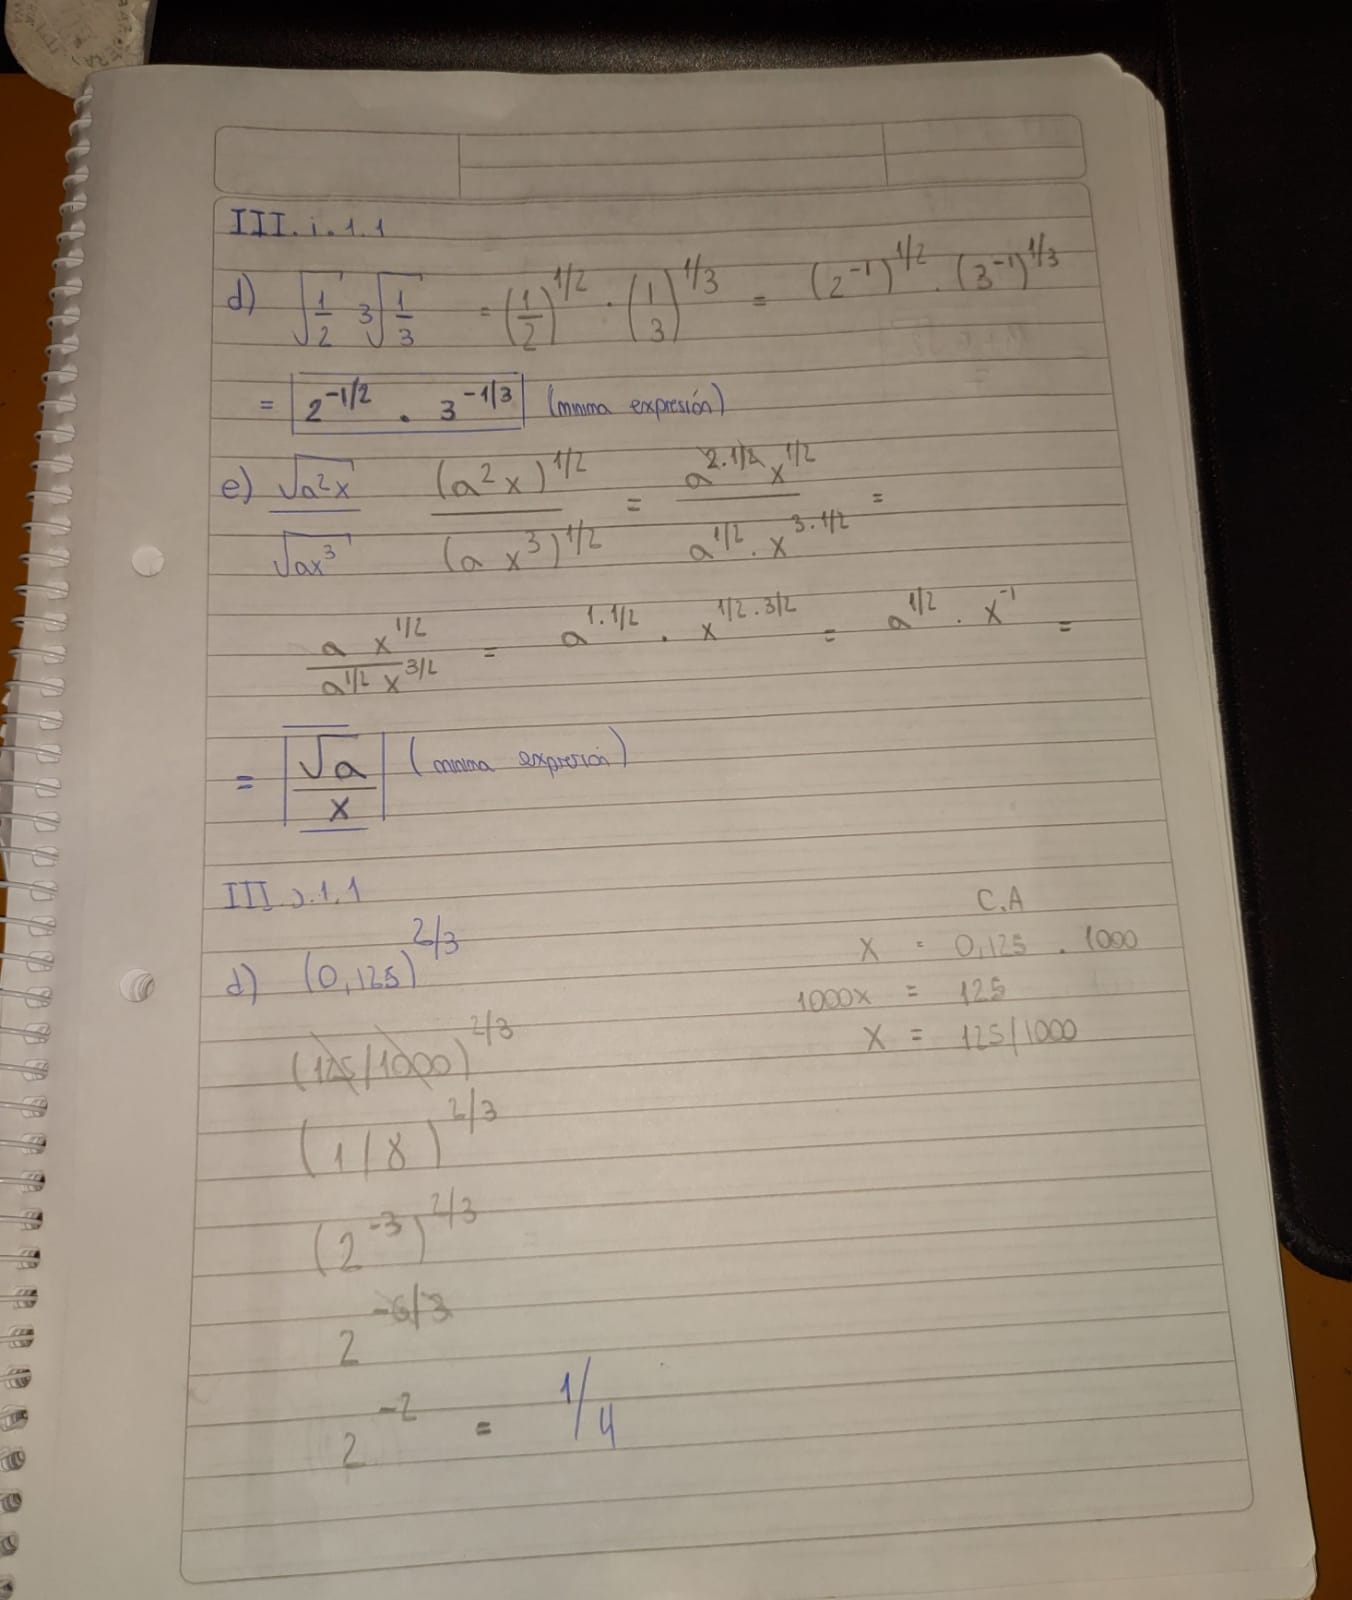 III.i.1.1
d) √(1/2) ³√(1/3) = (1/2)^1/2 · (1/3)^1/3 = (2^-1)^1/2 · (3^-1)^1/3
= 2^-1/2 · 3^-1/3 (mínima expresión)
e) √(a²x) / √(ax³) (a²x)^1/2 / (a x³)^1/2 = a^2·1/2 x^1/2 / a^1/2 · x^3·1/2 =
a x^1/2 / a^1/2 x^3/2 = a^1·1/2 · x^1/2·3/2 = a^1/2 · x^-1 =
= √a / x (mínima expresión)
III.j.1.1
C.A
d) (0,125)^2/3
x = 0,125 . 1000
1000x = 125
x = 125/1000
(125/1000)^2/3
(1/8)^2/3
(2^-3)^2/3
2^-6/3
2^-2 = 1/4